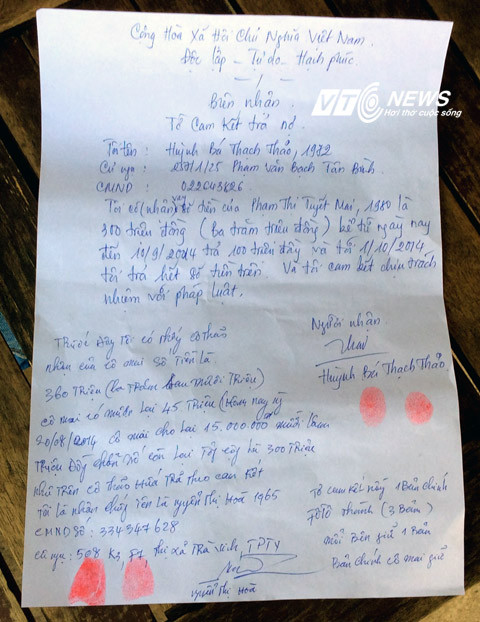 Cộng Hòa Xã Hội Chủ Nghĩa Việt Nam.
Độc lập - Tự do - Hạnh phúc.
VTC NEWS
Hơi thở cuộc sống
Biên nhận.
Tờ Cam Kết trả nợ.
Tôi tên : Huỳnh Bá Thạch Thảo, 1972
Cư ngụ : Phạm Văn Bạch Tân Bình
CMND :
Tôi có (nhận) vay số tiền của Phạm Thị Tuyết Mai, 1980 là
300 triệu đồng (ba trăm triệu đồng) kể từ ngày nay
đến 10/9/2014 trả 100 triệu đồng và tới 1/10/2014
tôi trả hết số tiền trên. Và tôi cam kết chịu trách
nhiệm với pháp luật.
Người nhận
Huỳnh Bá Thạch Thảo
Trước đây tôi có thấy cô thảo
nhận của cô mai số tiền là
360 triệu (ba trăm sáu mươi triệu)
cô mai có lại 45 triệu (Hôm nay ng
20/08/2014 cô mai cho lại 15.000.000 mười lăm
triệu đồng còn lại là 300 triệu
như trên cô thảo hứa trả theo cam kết
Tôi là nhân chứng tên là nguyễn thị Hoà 1965
CMND số: 334347628
cư ngụ: 508 K3, F7, thị xã Trà Vinh, TPTV
nguyễn thị Hoà
Tờ cam kết này 1 Bản chính
FOTO thành (3 Bản)
mỗi Bên giữ 1 Bản
Bản chính cô mai giữ